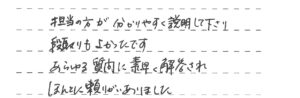 担当の方が分かりやすく説明して下さり
段取りもよかったです
あらゆる質問に素早く解答され
ほんとに頼りがいありました